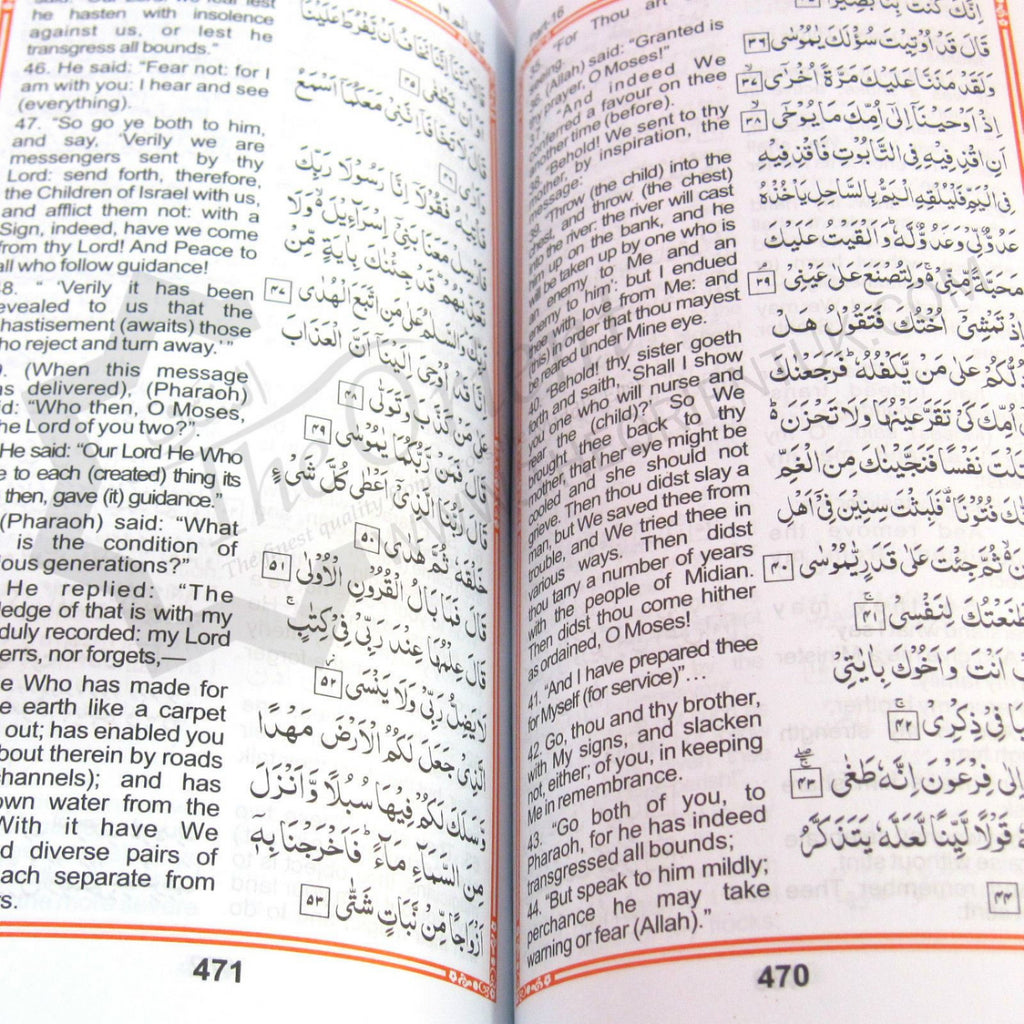 Part-16
seeing."
"For Thou art
36. (Allah) said: "Granted is
thy prayer, O Moses!"
37. "And indeed We
conferred a favour on thee
another time (before).
38. "Behold! We sent to thy
mother, by inspiration, the
message:
39. "Throw (the child) into the
chest, and throw (the chest)
into the river: the river will cast
him up on the bank, and he
will be taken up by one who is
an enemy to Me and an
enemy to him': but I endued
thee with love from Me: and
(this) in order that thou mayest
be reared under Mine eye.
40. "Behold! thy sister goeth
forth and saith, 'Shall I show
you one who will nurse and
rear the (child)?' So We
brought thee back to thy
mother, that her eye might be
cooled and she should not
grieve. Then thou didst slay a
man, but We saved thee from
trouble, and We tried thee in
various ways. Then didst
thou tarry a number of years
with the people of Midian.
Then didst thou come hither
as ordained, O Moses!
41. "And I have prepared thee
for Myself (for service)"...
42. Go, thou and thy brother,
with My signs, and slacken
not, either; of you, in keeping
Me in remembrance.
43. "Go both of you, to
Pharaoh, for he has indeed
transgressed all bounds;
44. "But speak to him mildly;
perchance he may take
warning or fear (Allah)."
اِنَّكَ كُنْتَ بِنَا بَصِيْرًا ٣٥
قَالَ قَدْ اُوْتِيْتَ سُؤْلَكَ يٰمُوْسٰى ٣٦
وَلَقَدْ مَنَنَّا عَلَيْكَ مَرَّةً اُخْرٰٓى ٣٧
اِذْ اَوْحَيْنَآ اِلٰٓى اُمِّكَ مَا يُوْحٰٓى ٣٨
اَنِ اقْذِفِيْهِ فِى التَّابُوْتِ فَاقْذِفِيْهِ
فِى الْيَمِّ فَلْيُلْقِهِ الْيَمُّ بِالسَّاحِلِ يَاْخُذْهُ
عَدُوٌّ لِّىْ وَعَدُوٌّ لَّهٗ ؕ وَاَلْقَيْتُ عَلَيْكَ
مَحَبَّةً مِّنِّىْ ۚ وَلِتُصْنَعَ عَلٰى عَيْنِىْ ٣٩
اِذْ تَمْشِىْٓ اُخْتُكَ فَتَقُوْلُ هَلْ
عَلٰى مَنْ يَّكْفُلُهٗ ؕ فَرَجَعْنٰكَ
اُمِّكَ كَىْ تَقَرَّ عَيْنُهَا وَلَا تَحْزَنَ ؕ
نَفْسًا فَنَجَّيْنٰكَ مِنَ الْغَمِّ
فُتُوْنًا ۚ فَلَبِثْتَ سِنِيْنَ فِىْٓ اَهْلِ
ثُمَّ جِئْتَ عَلٰى قَدَرٍ يّٰمُوْسٰى ٤٠
لِنَفْسِىْ ٤١
اَنْتَ وَاَخُوْكَ بِاٰيٰتِىْ
فِىْ ذِكْرِىْ ٤٢
اِلٰى فِرْعَوْنَ اِنَّهٗ طَغٰى ٤٣
قَوْلًا لَّيِّنًا لَّعَلَّهٗ يَتَذَكَّرُ
٤٤
470
he hasten with insolence
against us, or lest he
transgress all bounds."
46. He said: "Fear not: for I
am with you: I hear and see
(everything).
47. "So go ye both to him,
and say, 'Verily we are
messengers sent by thy
Lord: send forth, therefore,
the Children of Israel with us,
and afflict them not: with a
Sign, indeed, have we come
from thy Lord! And Peace to
all who follow guidance!
48. " 'Verily it has been
revealed to us that the
chastisement (awaits) those
who reject and turn away.' "
(When this message
delivered), (Pharaoh)
"Who then, O Moses,
the Lord of you two?".
He said: "Our Lord He Who
to each (created) thing its
then, gave (it) guidance."
(Pharaoh) said: "What
is the condition of
generations?"
He replied: "The
of that is with my
duly recorded: my Lord
errs, nor forgets,—
Who has made for
earth like a carpet
out; has enabled you
about therein by roads
channels); and has
water from the
With it have We
diverse pairs of
each separate from
قَالَا رَبَّنَآ اِنَّنَا نَخَافُ اَنْ يَّفْرُطَ عَلَيْنَآ
اَوْ اَنْ يَّطْغٰى ٤٥
قَالَ لَا تَخَافَآ اِنَّنِىْ مَعَكُمَآ اَسْمَعُ
وَاَرٰى ٤٦
فَاْتِيٰهُ فَقُوْلَآ اِنَّا رَسُوْلَا رَبِّكَ
فَاَرْسِلْ مَعَنَا بَنِىْٓ اِسْرَآءِيْلَ ۙ وَلَا
تُعَذِّبْهُمْ ؕ قَدْ جِئْنٰكَ بِاٰيَةٍ مِّنْ
رَّبِّكَ ؕ وَالسَّلٰمُ عَلٰى مَنِ اتَّبَعَ الْهُدٰى ٤٧
اِنَّا قَدْ اُوْحِىَ اِلَيْنَآ اَنَّ الْعَذَابَ
عَلٰى مَنْ كَذَّبَ وَتَوَلّٰى ٤٨
قَالَ فَمَنْ رَّبُّكُمَا يٰمُوْسٰى ٤٩
قَالَ رَبُّنَا الَّذِىْٓ اَعْطٰى كُلَّ شَىْءٍ
خَلْقَهٗ ثُمَّ هَدٰى ٥٠
قَالَ فَمَا بَالُ الْقُرُوْنِ الْاُوْلٰى ٥١
قَالَ عِلْمُهَا عِنْدَ رَبِّىْ فِىْ كِتٰبٍ ۚ
لَا يَضِلُّ رَبِّىْ وَلَا يَنْسَى ٥٢
الَّذِىْ جَعَلَ لَكُمُ الْاَرْضَ مَهْدًا
وَّسَلَكَ لَكُمْ فِيْهَا سُبُلًا وَّاَنْزَلَ
مِنَ السَّمَآءِ مَآءً ؕ فَاَخْرَجْنَا بِهٖٓ
اَزْوَاجًا مِّنْ نَّبَاتٍ شَتّٰى ٥٣
471